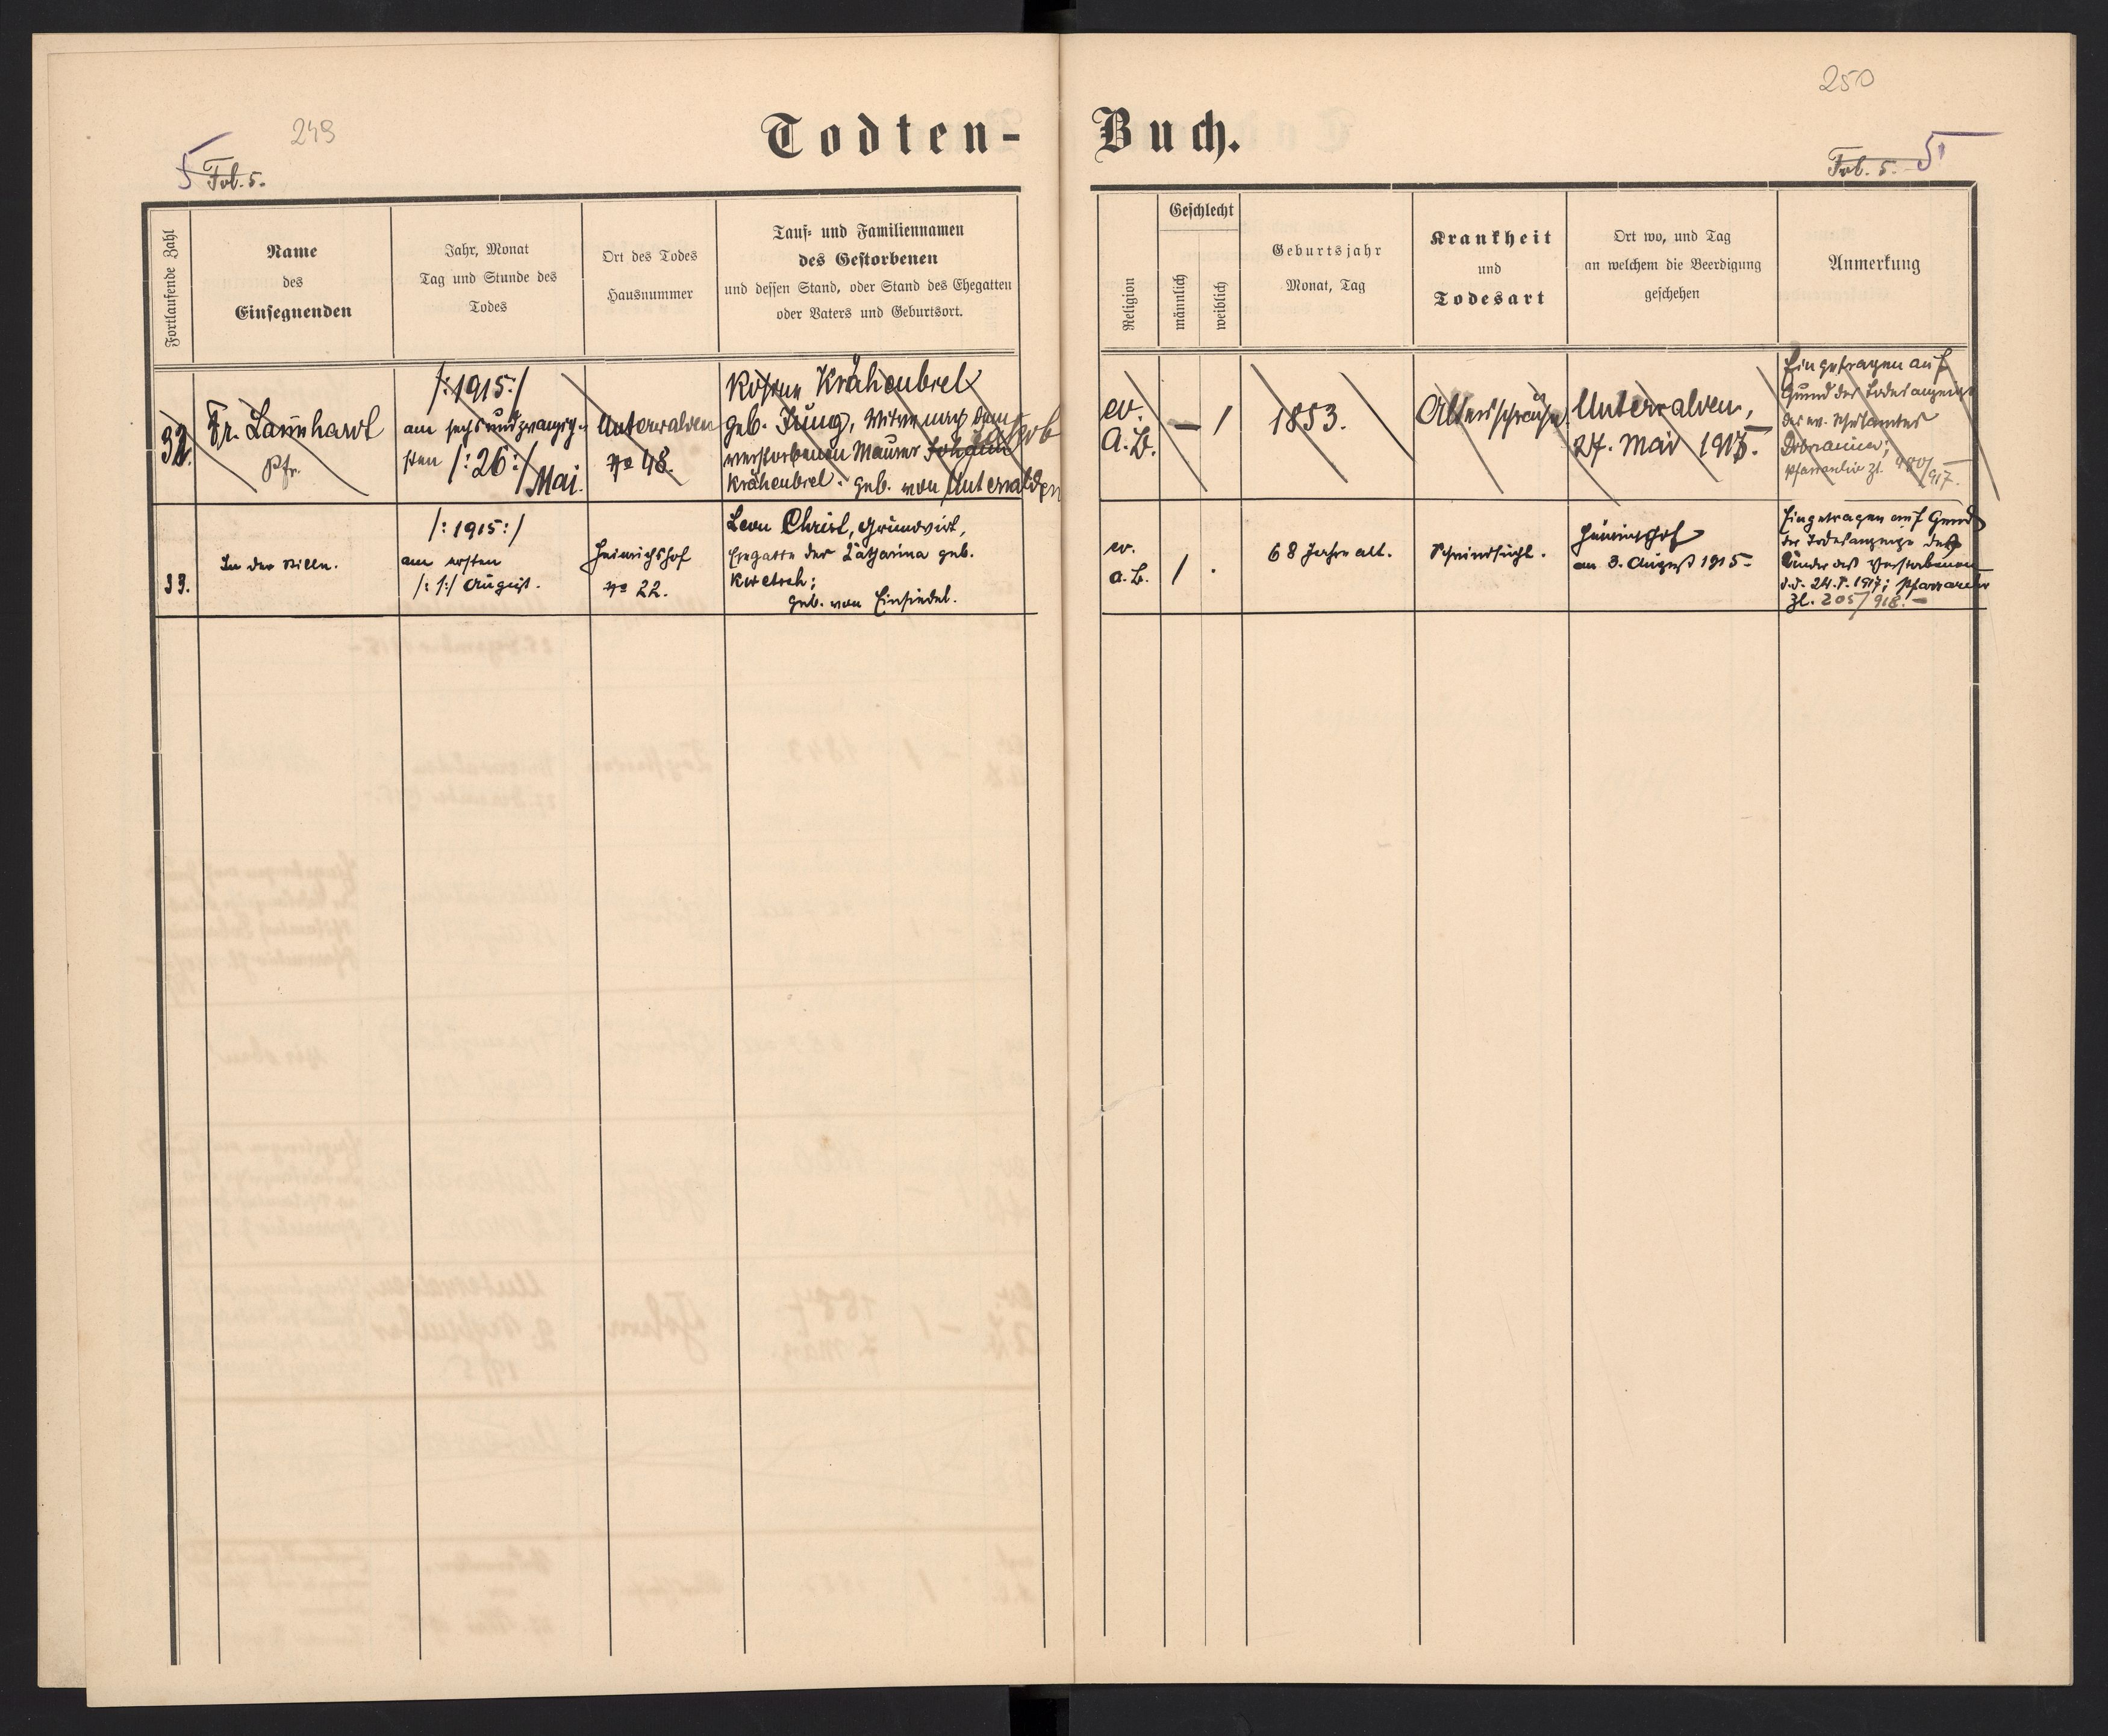 249
250
Todten-Buch.
5 Fol. 5.
Fol. 5. 5
Fortlaufende Zahl
Name
des
Einsegnenden
Jahr, Monat
Tag und Stunde des
Todes
Ort des Todes
Hausnummer
Tauf- und Familiennamen
des Gestorbenen
und dessen Stand, oder Stand des Ehegatten
oder Vaters und Geburtsort.
Religion
Geschlecht
männlich
weiblich
Geburtsjahr
Monat, Tag
Krankheit
und
Todesart
Ort wo, und Tag
an welchem die Beerdigung
geschehen
Anmerkung
32.
Fr. Laünhardt
Pfr.
/:1915:/
am sechsundzwanzig-
sten /:26:/
Mai.
Unterwalden
No 48.
Rosina Krähenbiel
geb. Jung, Witwe nach dem
verstorbenen Maurer Johann Jakob
Krähenbiel. geb. von Unterwalden
ev.
A.B.
—
1
1853.
Altersschwäche.
Unterwalden,
27. Mai 1915.
Eingetragen auf
Grund der Todesanzeige
des ev. Pfarramtes
Dobrzanica;
Pfarrarchiv Zl. 480/917.
33.
In der Stille.
/:1915:/
am ersten
/:1:/ August.
Heinrichshof
No 22.
Leon Christ, Grundwirt,
Ehegatte der Katharina geb.
Kwetsch;
geb. von Einsiedel.
ev.
A.B.
1
.
68 Jahre alt.
Schwindsucht.
Heinrichshof
am 3. August 1915-
Eingetragen auf Grund
der Todesanzeige der
Kinder des Verstorbenen
d.d. 24.P. 1917; Pfarrarchiv
Zl. 205/918.-